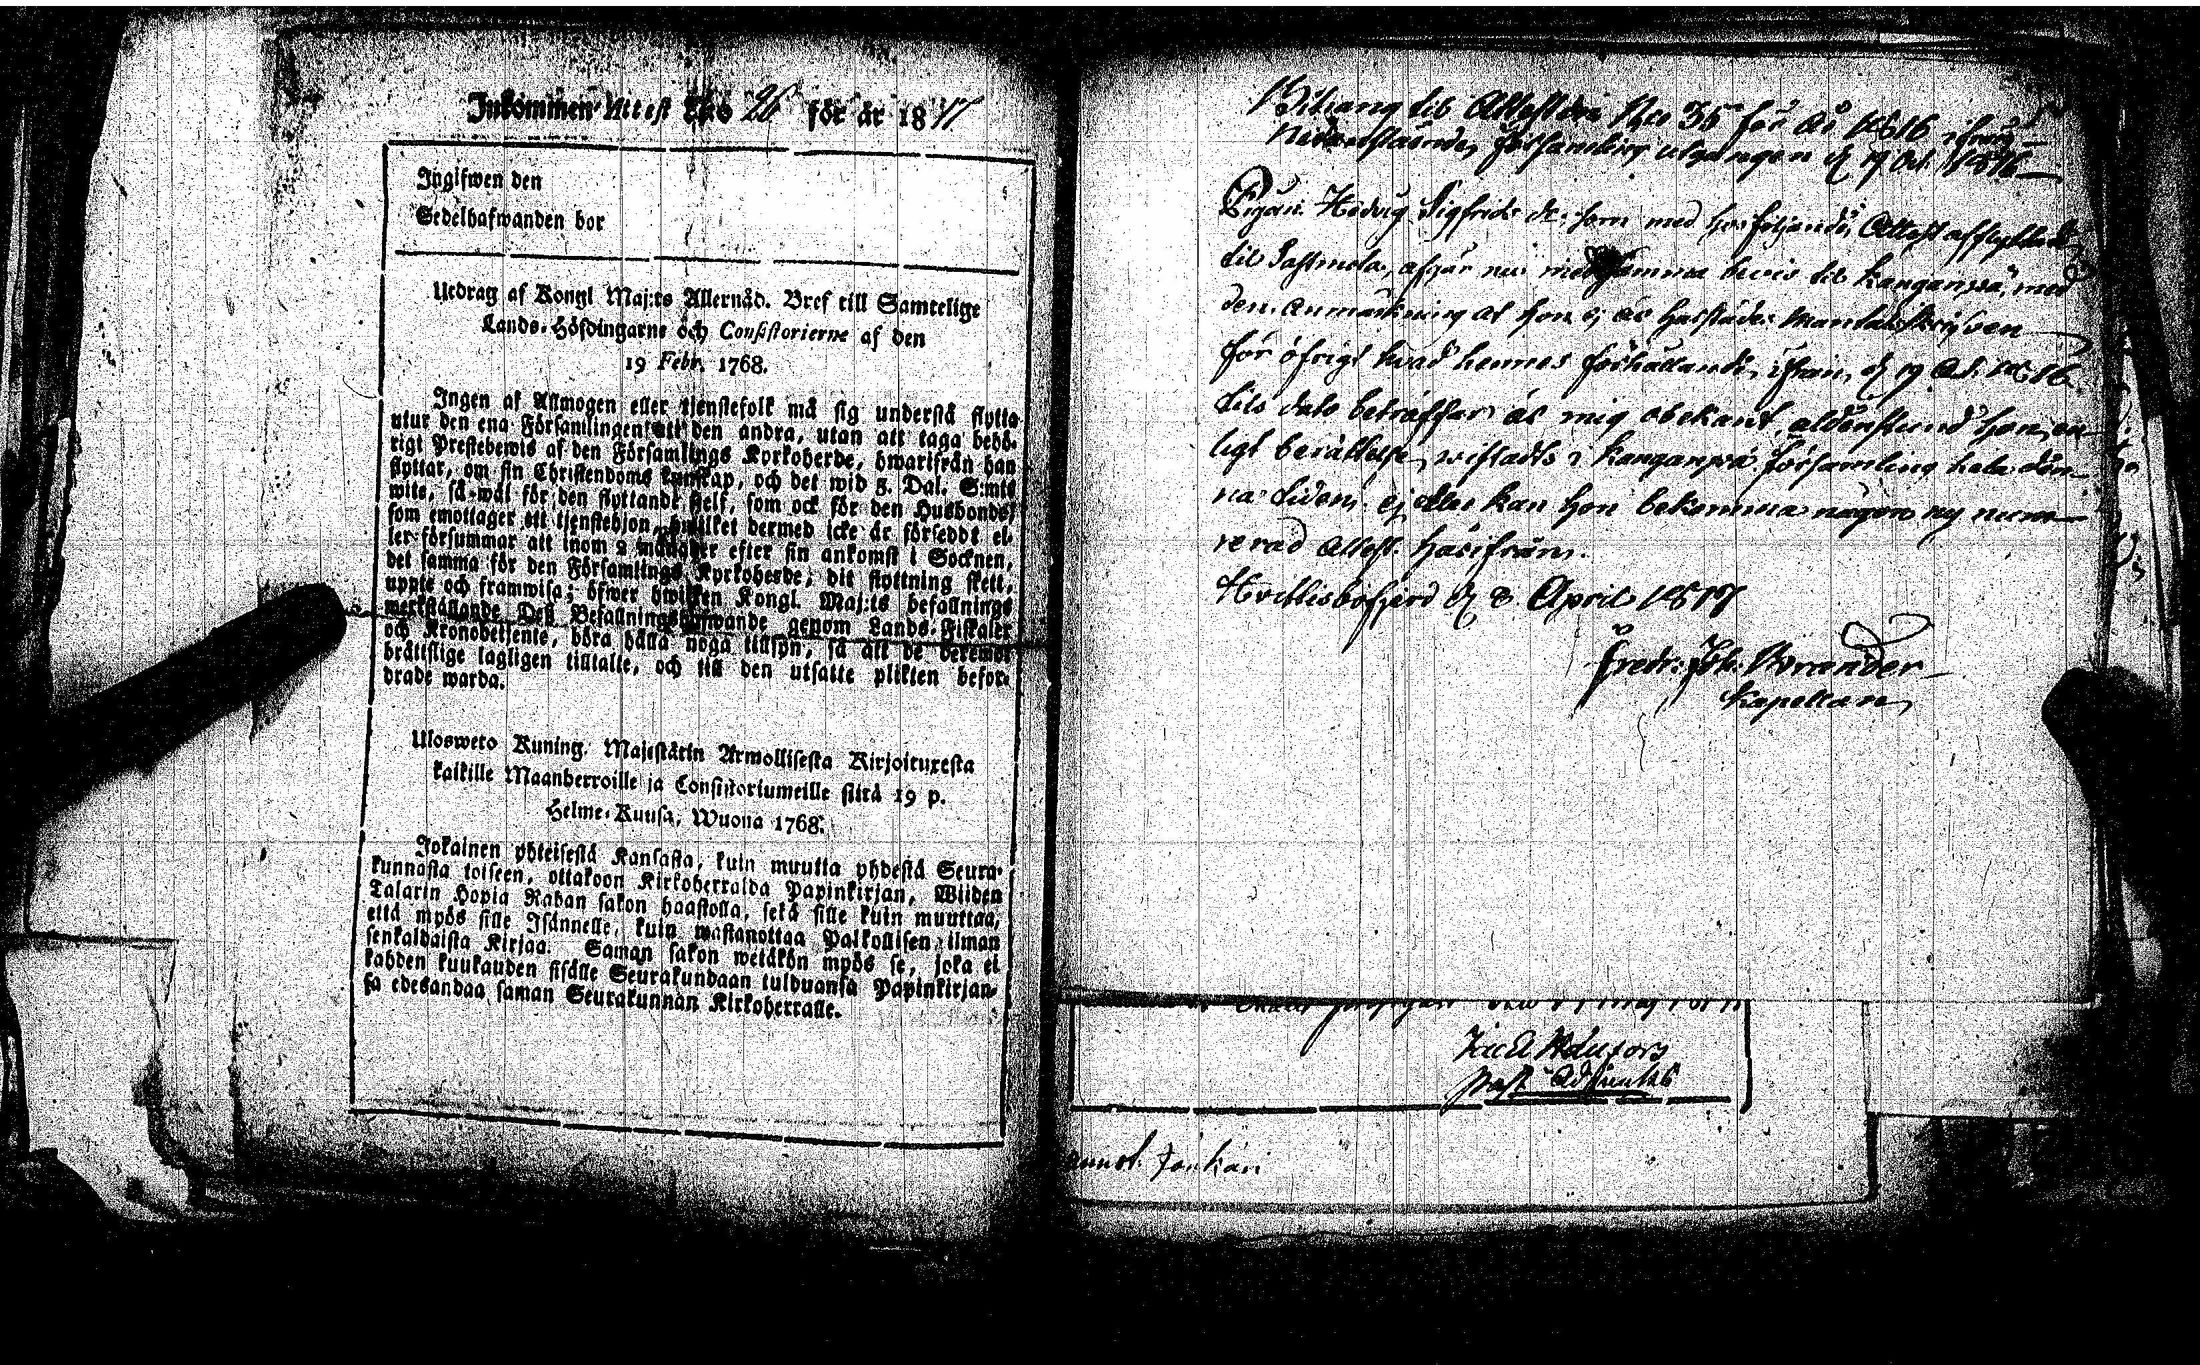 Inkommen Attest No 26 för år 1817
Ingifwen den
Sedelhafwanden bor
Utdrag af Kongl Maj:ts Allernåd. Bref till Samtelige
Lands-Höfdingarne och Consistorierne af den
19 Febr. 1768.
Ingen af Allmogen eller tjenstefolk må sig understå flytta
utur den ena Församlingen till den andra, utan att taga behö-
rigt Prestebewis af den Församlings Kyrkoherde, hwarifrån han
flyttar, om sin Christendoms kunskap, och det wid 5. Dal. S:mts
wite, så wäl för den flyttande sielf, som ock för den Husbonde,
som emottager ett tjenstehjon, hwilket dermed icke är försedt el-
ler försummar att inom 2 månader efter sin ankomst i Socknen,
det samma för den Församlings Kyrkoherde, dit flyttning skett,
uppte och framwisa; öfwer hwilken Kongl. Maj:ts befallnings
werkställande Dess Befallningshafwande genom Lands-Fiskaler
och Kronobetjente, böra hålla noga tillsyn, så att de
brättslige lagligen tilltalte, och till den utsatte plikten befor-
drade warda.
Ulosweto Kuning. Majestätin Armollisesta Kirjoituxesta
kaikille Maanherroille ja Consistoriumeille siitä 19 p.
Helme-Kuusa, Wuona 1768.
Jokainen yhteisestä Kansasta, kuin muutta yhdestä Seura-
kunnasta toiseen, ottakoon Kirkoherralda Papinkirjan, Wiiden
Talarin Hopia Rahan sakon haastolla, sekä sille kuin muuttaa,
että myös sille Isännelle, kuin wastanottaa Palkollisen ilman
senkaldaista Kirjaa. Saman sakon wetäkön myös se, joka ei
kahden kuukauden sisälle Seurakundaan tulduansa Papinkirjan-
sa edesandaa saman Seurakunnan Kirkoherralle.
Bihang til Attesten No 35 för år 1816 ifrån
nedanstående församling utgången d. 19 Oct. 1816
Pigan Hedvig Sigfrids dr. som med hosföljande Attest afflyttad
til Pastmola, afgår nu med samma bevis til Kangaspä, med
den anmärkning at hon ej är härstädes Mantalskrifven
för öfrigt hvad hennes förhållande, ifrån d. 19 Oct. 1816
tils dato beträffar är mig obekant, aldenstund hon, en-
ligt berättelse, vistadts i Kangaspä församling hela den-
na tiden. ej eller kan hon bekomma någon ny num-
rerad Attest härifrån.
Hvittisbofjerd d. 8 April 1817
Fredr: Joh: Brander
Kapellan